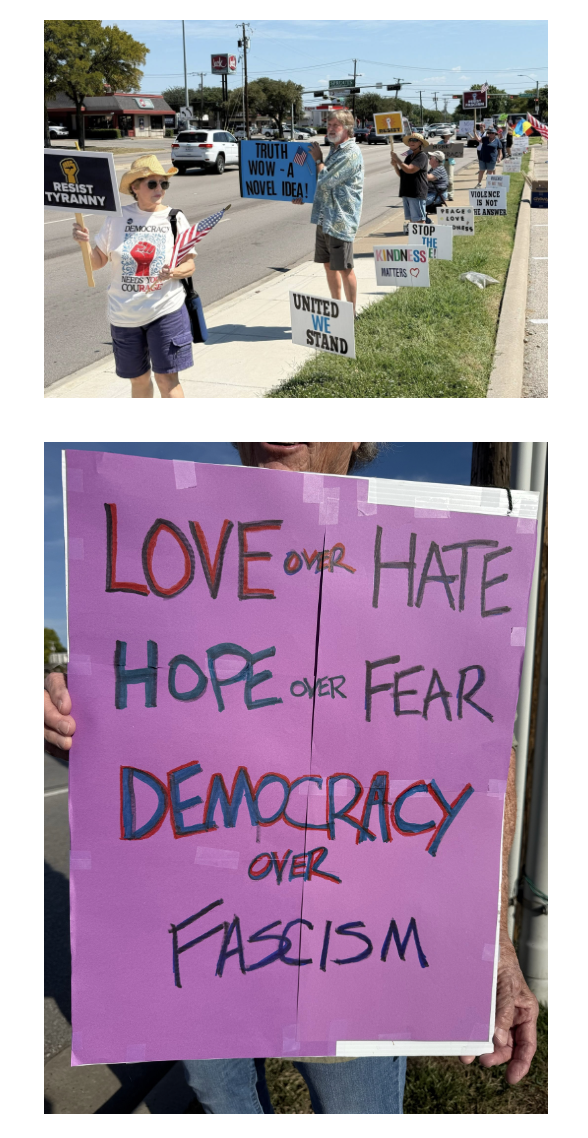 RESIST
TYRANNY
DEMOCRACY
NEEDS YOUR
COURAGE
TRUTH
WOW - A
NOVEL IDEA!
UNITED
WE
STAND
KINDNESS
MATTERS
STOP
THE
PEACE
LOVE
VIOLENCE
IS NOT
THE ANSWER
LOVE OVER HATE
HOPE OVER FEAR
DEMOCRACY
OVER
FASCISM